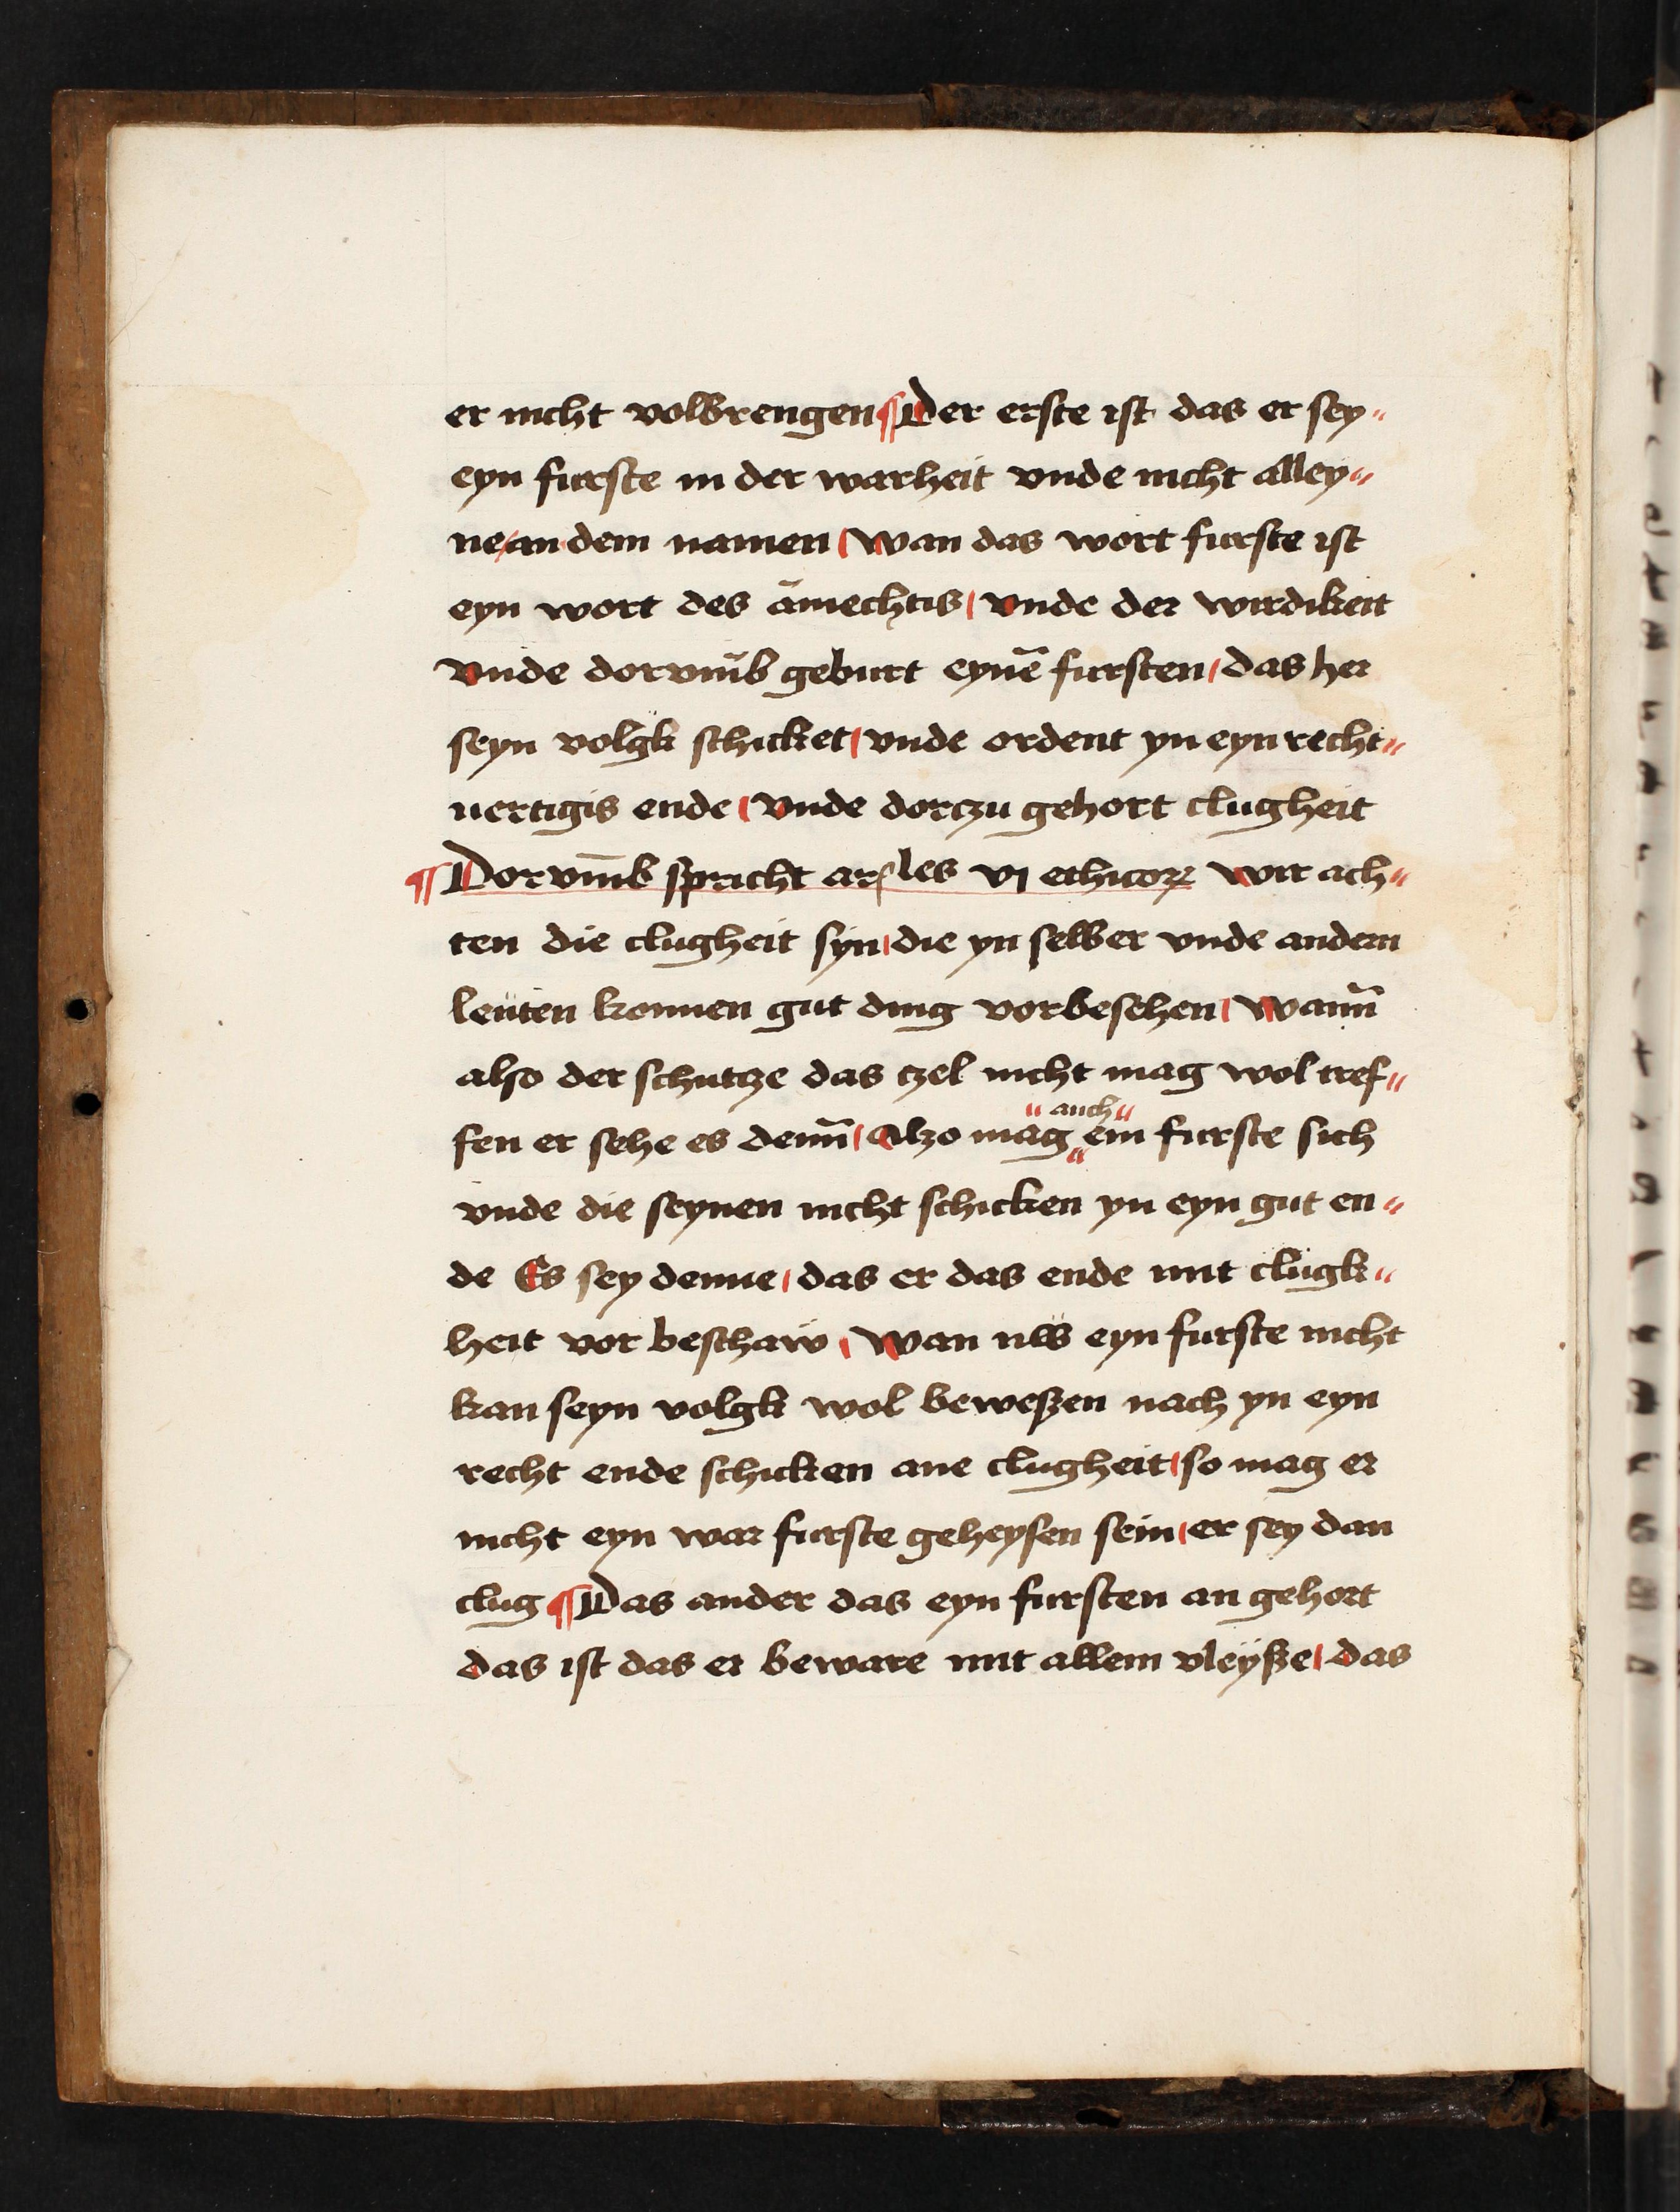 er nicht volbrengen ¶ Der erste ist das er sey⸗
eyn furste in der warheit vnde nicht alley⸗
ne/an dem namen / wan das wort furste ist
eyn wort des āmechtis / vnde der wirdikeit
vnde dorvm̄b geburt eynē fursten / das her
seyn volgk schicket / vnde ordent yn eyn recht⸗
uertigis ende / vnde dorczu gehort clugheit
¶ Dorvm̄b spricht arſles vj ethicoꝝ wir ach⸗
ten die clugheit syn / die yn selber vnde andern
leüten konnen gut ding vorbesehen / wann̄
also der schutcze das czel nicht mag wol tref⸗
fen er sehe es denn̄ / Alzo mag auch ein furste sich
vnde die seynen nicht schicken yn eyn gut en⸗
de Es sey denne / das er das ende mit clugk⸗
heit vor beschaw / wan nw eyn furste nicht
kan seyn volgk wol beweßen nach yn eyn
recht ende schicken ane clugheit / so mag er
nicht eyn war furste geheysen sein / er sey dan
clug ¶ Das ander das eyn fursten an gehort
das ist das er beware mit allem vleyße / das